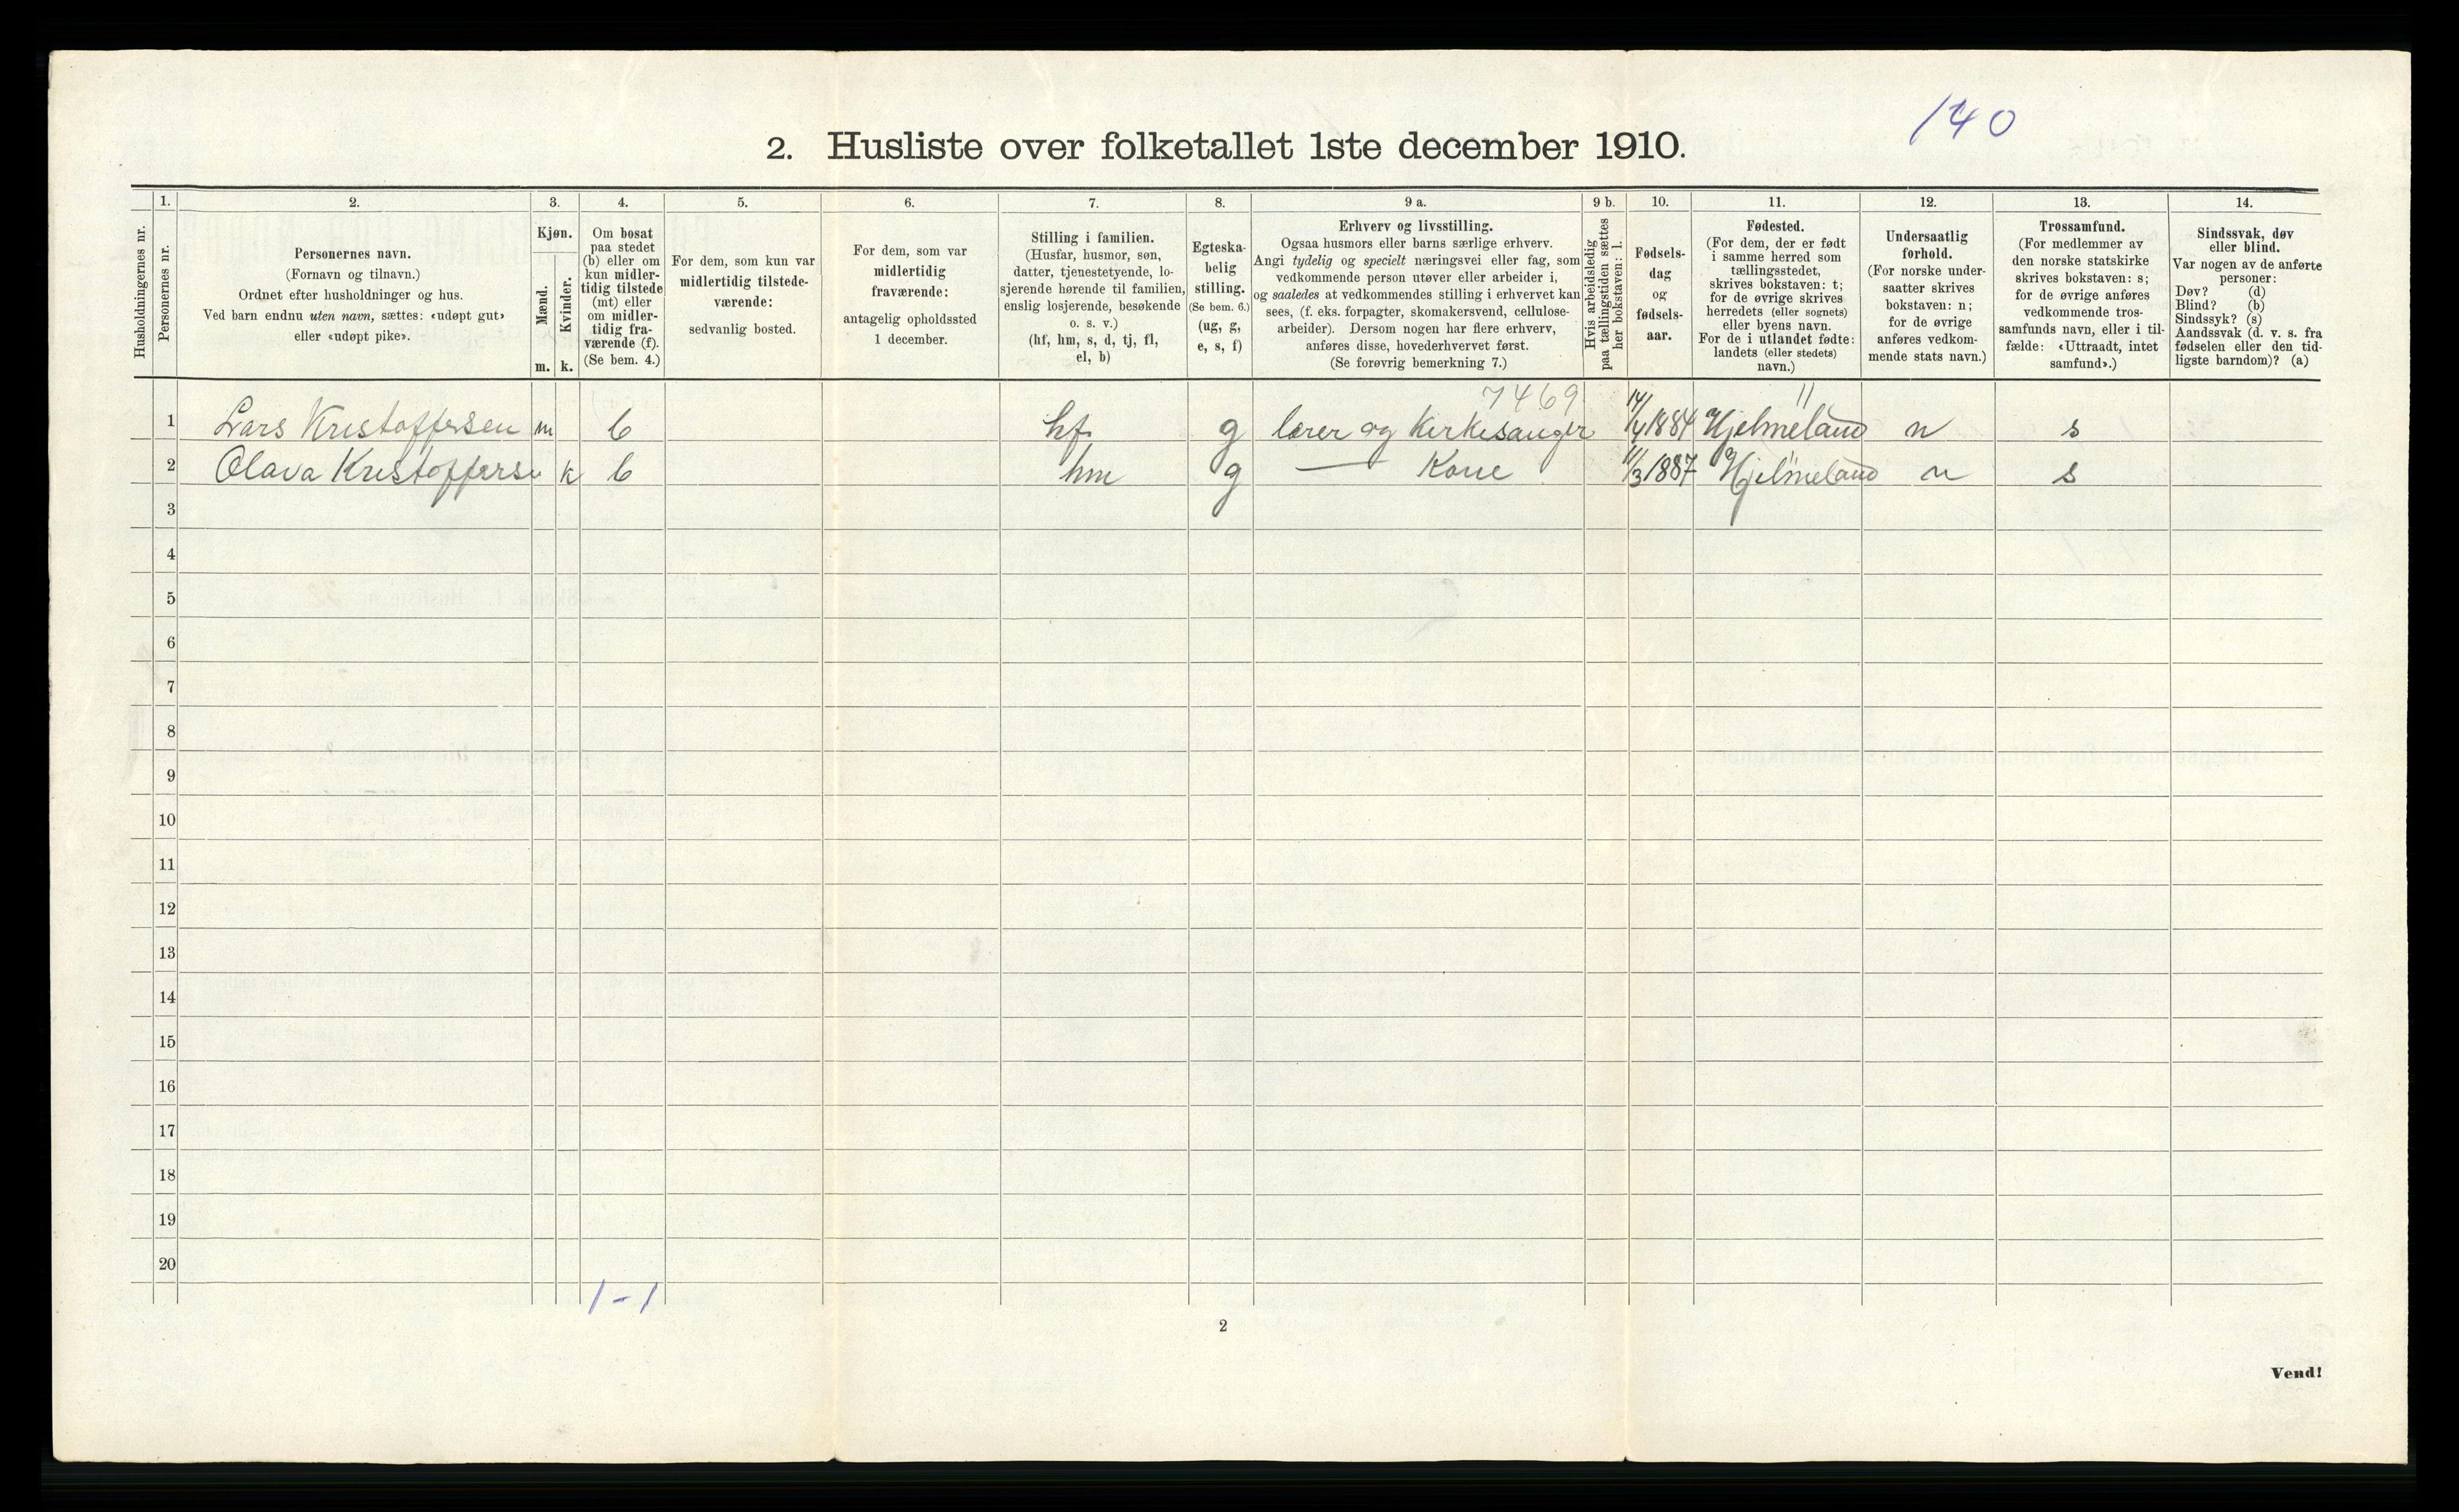 140
2. Husliste over folketallet 1ste december 1910.
Husholdningernes nr.
1.
Personernes nr.
2.
Personernes navn.
(Fornavn og tilnavn.)
Ordnet efter husholdninger og hus.
Ved barn endnu uten navn, sættes: «udøpt gut»
eller «udøpt pike».
3.
Kjøn.
Mænd.
Kvinder.
m. k.
4.
Om bosat
paa stedet
(b) eller om
kun midler-
tidig tilstede
(mt) eller
om midler-
tidig fra-
værende (f).
(Se bem. 4.)
5.
For dem, som kun var
midlertidig tilstede-
værende:
sedvanlig bosted.
6.
For dem, som var
midlertidig
fraværende:
antagelig opholdssted
1 december.
7.
Stilling i familien.
(Husfar, husmor, søn,
datter, tjenestetyende, lo-
sjerende hørende til familien,
enslig losjerende, besøkende
o. s. v.)
(hf, hm, s, d, tj, fl,
el, b)
8.
Egteska-
belig
stilling.
(Se bem. 6.)
(ug, g,
e, s, f)
9 a.
Erhverv og livsstilling.
Ogsaa husmors eller barns særlige erhverv.
Angi tydelig og specielt næringsvei eller fag, som
vedkommende person utøver eller arbeider i,
og saaledes at vedkommendes stilling i erhvervet kan
sees, (f. eks. forpagter, skomakersvend, cellulose-
arbeider). Dersom nogen har flere erhverv,
anføres disse, hovederhvervet først.
(Se forøvrig bemerkning 7.)
9 b.
Hvis arbeidsledig
paa tællingstiden sættes
her bokstaven: l.
10.
Fødsels-
dag
og
fødsels-
aar.
11.
Fødested.
(For dem, der er født
i samme herred som
tællingsstedet,
skrives bokstaven: t;
for de øvrige skrives
herredets (eller sognets)
eller byens navn.
For de i utlandet fødte:
landets (eller stedets)
navn.)
12.
Undersaatlig
forhold.
(For norske under-
saatter skrives
bokstaven: n;
for de øvrige
anføres vedkom-
mende stats navn.)
13.
Trossamfund.
(For medlemmer av
den norske statskirke
skrives bokstaven: s;
for de øvrige anføres
vedkommende tros-
samfunds navn, eller i til-
fælde: «Uttraadt, intet
samfund».)
14.
Sindssvak, døv
eller blind.
Var nogen av de anførte
personer:
Døv? (d)
Blind? (b)
Sindssyk? (s)
Aandssvak (d. v. s. fra
fødselen eller den tid-
ligste barndom)? (a)
7469 11
1 Lars Kristoffersen m b hf g lærer og Kirkesanger 14/4 1884 Hjelmeland n s
2 Olava Kristofferse k b hm g — Kone 11/3 1887 Hjelmeland n s
3
4
5
6
7
8
9
10
11
12
13
14
15
16
17
18
19
20
1 - 1
2
Vend!